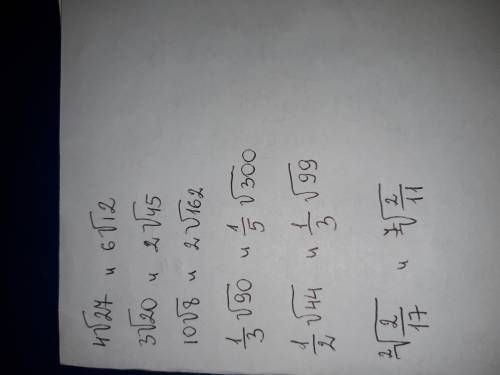 4√27 и 6√12
3√20 и 2√45
10√8 и 2√162
1/3 √90 и 1/5 √300
1/2 √44 и 1/3 √99
²√(2/17) и ⁷√(2/11)